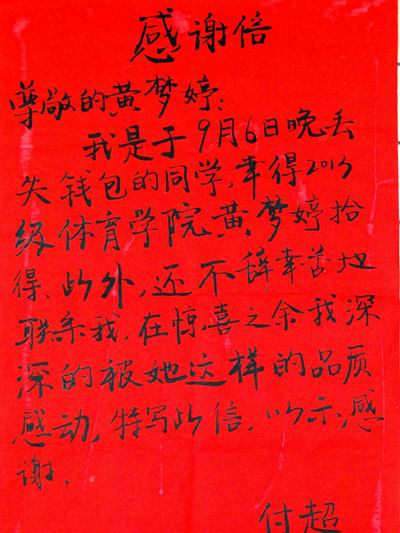 感谢信
尊敬的黄梦婷:
我是于9月6日晚丢
失钱包的同学,幸得2013
级体育学院黄梦婷拾
得.此外,还不辞幸苦地
联系我.在惊喜之余我深
深的被她这样的品质
感动,特写此信,以示感
谢.
付超